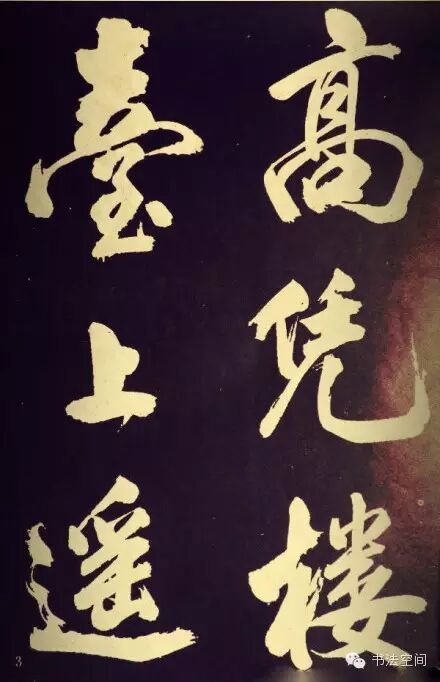 髙凭楼
臺上遥
3
书法空间